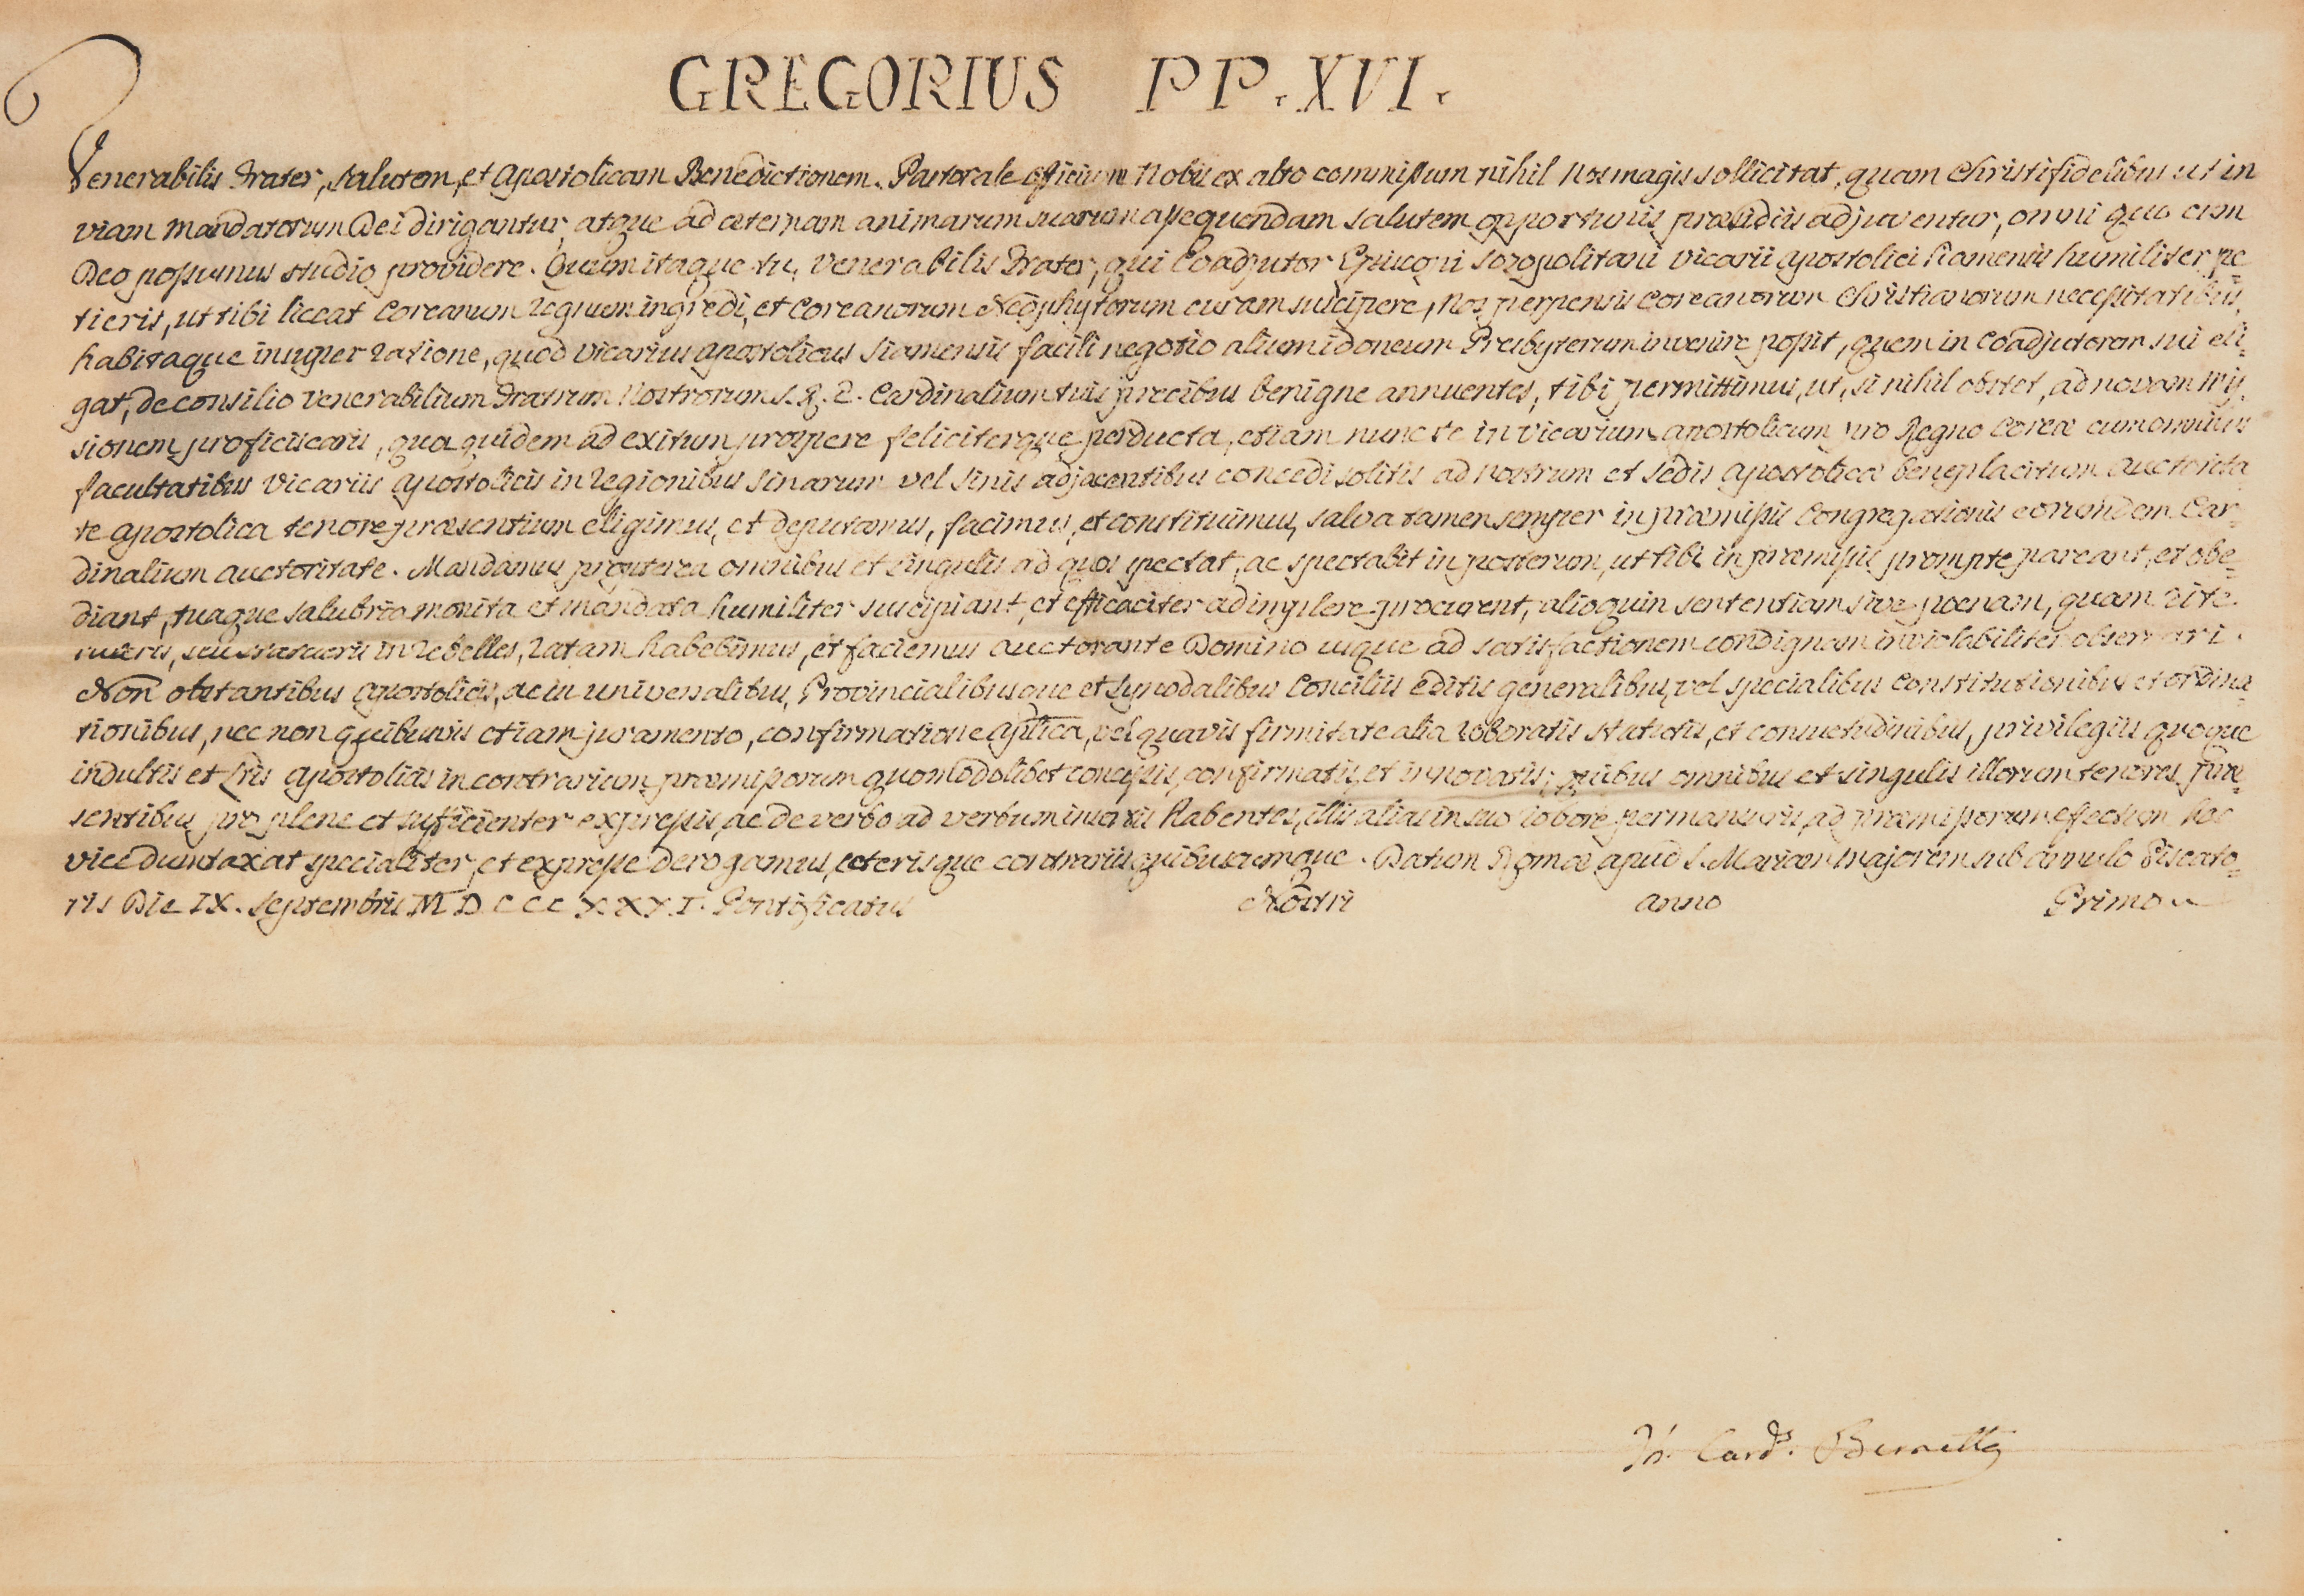 GREGORIUS PP. XVI.
Venerabilis Frater, salutem, et Apostolicam Benedictionem. Pastorale officium Nobis ex alto commissum nihil Nos magis sollicitat, quam Christifidelibus ut in
viam mandatorum Dei dirigantur, atque ad æternam animarum suarum assequendam salutem opportunis præsidiis adjuventur, omni quo cum
Deo possumus studio providere. Quum itaque tu, Venerabilis Frater, qui Coadjutor Episcopi Sozopolitani Vicarii Apostolici Siamensis humiliter pe=
tieris, ut tibi liceat Coreanum Regnum ingredi, et Coreanorum Neophytorum curam suscipere, Nos perpensis Coreanorum Christianorum necessitatibus,
habitaque insuper ratione, quod Vicarius Apostolicus Siamensis facili negotio alium idoneum Presbyterum invenire possit, quem in Coadjutorem sui eli=
gat, de consilio Venerabilium Fratrum Nostrorum S. R. E. Cardinalium tuis precibus benigne annuentes, tibi permittimus, ut, si nihil obstet, ad novam Mis
sionem proficiscaris, qua quidem ad exitum prospere feliciterque perducta, etiam nunc te in Vicarium Apostolicum pro Regno Coreæ cum omnibus
facultatibus Vicariis Apostolicis in Regionibus Sinarum vel Sinis adjacentibus concedi solitis ad Nostrum et Sedis Apostolicæ beneplacitum auctorita
te Apostolica tenore præsentium eligimus, et deputamus, facimus, et constituimus, salva tamen semper in præmissis Congregationis eorumdem Car=
dinalium auctoritate. Mandamus propterea omnibus et singulis ad quos spectat, ac spectabit in posterum, ut tibi in præmissis prompte pareant, et obe=
diant, tuaque salubria monita et mandata humiliter suscipiant, et efficaciter adimplere procurent, alioquin sententiam sive pœnam, quam rite
tuleris, seu statueris in rebelles, ratam habebimus, et faciemus auctorante Domino usque ad satisfactionem condignam inviolabiliter observari.
Non obstantibus Apostolicis, ac in universalibus, Provincialibusque et Synodalibus Conciliis editis generalibus, vel specialibus Constitutionibus et ordina
tionibus, nec non quibusvis etiam juramento, confirmatione aplica, vel quavis firmitate alia roboratis statutis, et consuetudinibus, privilegiis quoque
indultis et Lris Apostolicis in contrarium præmissorum quomodolibet concessis, confirmatis, et innovatis; quibus omnibus et singulis illorum tenores præ=
sentibus pro plene et sufficienter expressis, ac de verbo ad verbum insertis habentes, illis alias in suo robore permansuris, ad præmissorum effectum hac
vice dumtaxat specialiter, et expresse derogamus, ceterisque contrariis quibuscumque. Datum Romæ apud S. Mariam Majorem sub annulo Piscato=
ris Die IX. Septembris MDCCCXXXI. Pontificatus Nostri anno Primo
Th. Card. Bernetti